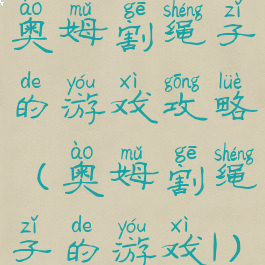 ào mǔ gē shéng zǐ
奥姆割绳子
de yóu xì gōng lüè
的游戏攻略
ào mǔ gē shéng
（奥姆割绳
zǐ de yóu xì
子的游戏|）